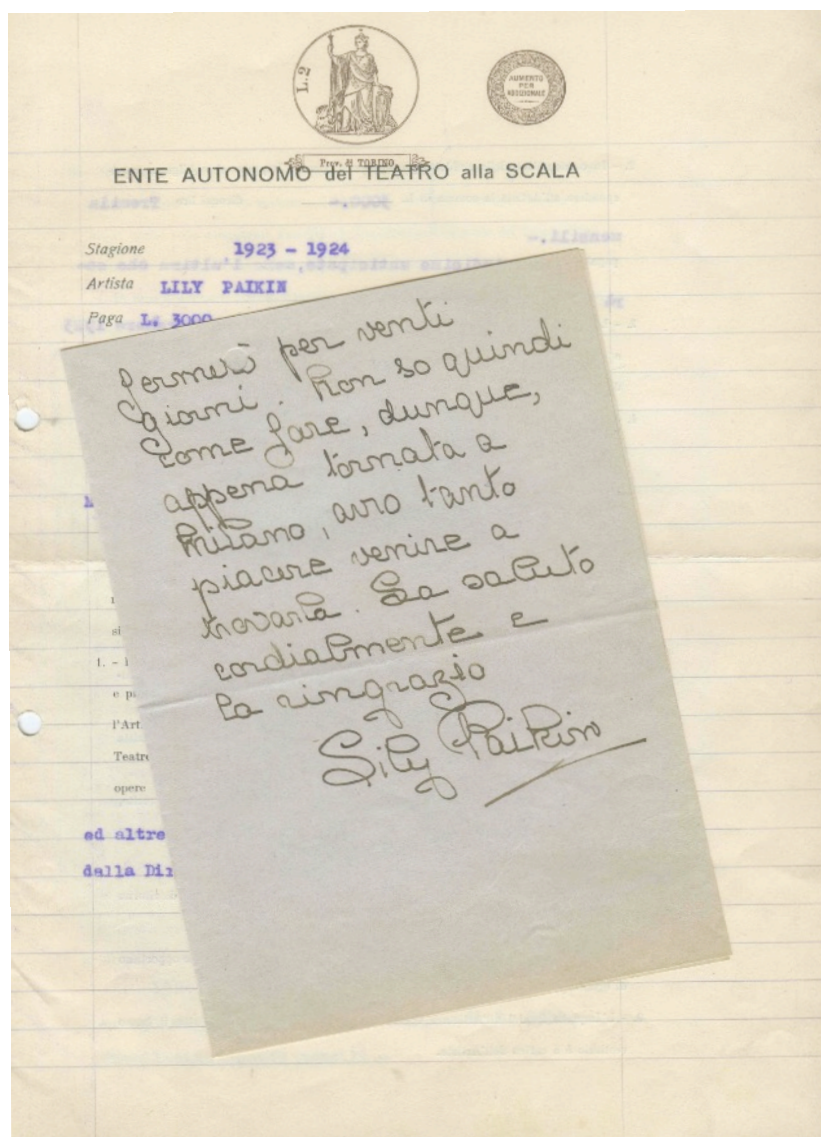 L.2
AUMENTO
PER
ADDIZIONALE
Prov. di TORINO
ENTE AUTONOMO del TEATRO alla SCALA
3000.-
mensili.-
Stagione 1923 - 1924
Artista LILY PAIKIN
Paga L. 3000
fermerò per venti
giorni. Non so quindi
come fare, dunque,
appena tornata a
Milano, avrò tanto
piacere venire a
trovarla. La saluto
cordialmente e
la ringrazio
Lily Paikin
si
1. -
e p
l'Art.
Teatro
opere
ed altre
dalla Di